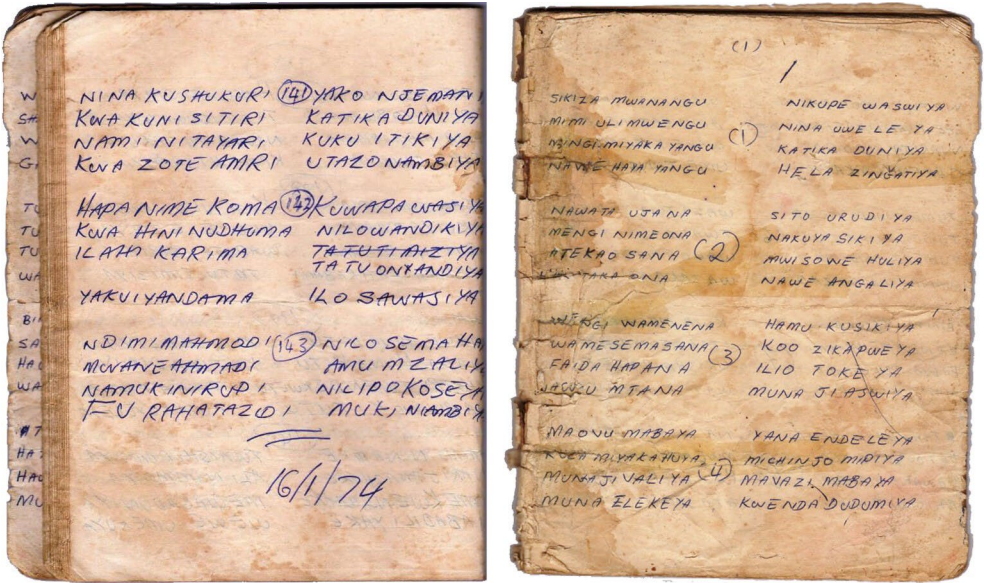 NINA KUSHUKURI (141) YAKO NJEMATI
KWA KUNI SITIRI KATIKA DUNIYA
NAMI NITAYARI KUKU ITIKIYA
KWA ZOTE AMRI UTAZONAMBIYA
HAPA NIME KOMA (142) KUWAPA WASIYA
KWA HINI NUDHUMA NILOWANDIKIYA
ILAHI KARIMA TATUTIMIZIYA
TATU ONYANDIYA
YAKUIYANDAMA ILO SAWASIYA
NDIMI MAHMODI (143) NILO SEMA HA
MWANE AHMADI AMU MZALIY
NAMUKINIRUDI NILIPOKOSEYA
FU RAHATAZIDI MUKI NIAMBIYA
16/1/74
(1)
1
SIKIZA MWANANGU NIKUPE WASWIYA
MIMI ULIMWENGU (1) NINA UWELE YA
MINGI MIYAKA YANGU KATIKA DUNIYA
NAWE HAYA YANGU HELA ZINGATIYA
NAWATA UJANA SITO URUDIYA
MENGI NIMEONA (2) NAKUYA SIKIYA
ATEKAO SANA MWISOWE HULIYA
ONA NAWE ANGALIYA
WENGI WAMENENA HAMU KUSIKIYA
WAMESEMA SANA (3) KOO ZIKAPWEYA
FAIDA HAPANA ILIO TOKE YA
MTANA MUNA JI ASWIYA
MAOVU MABAYA YANA ENDELEYA
KULA MIYAKA HUYA (4) MICHINJO MIPIYA
MUNAJIVALIYA MAVAZI MABAYA
MUNA ELEKEYA KWENDA DUDUMIYA